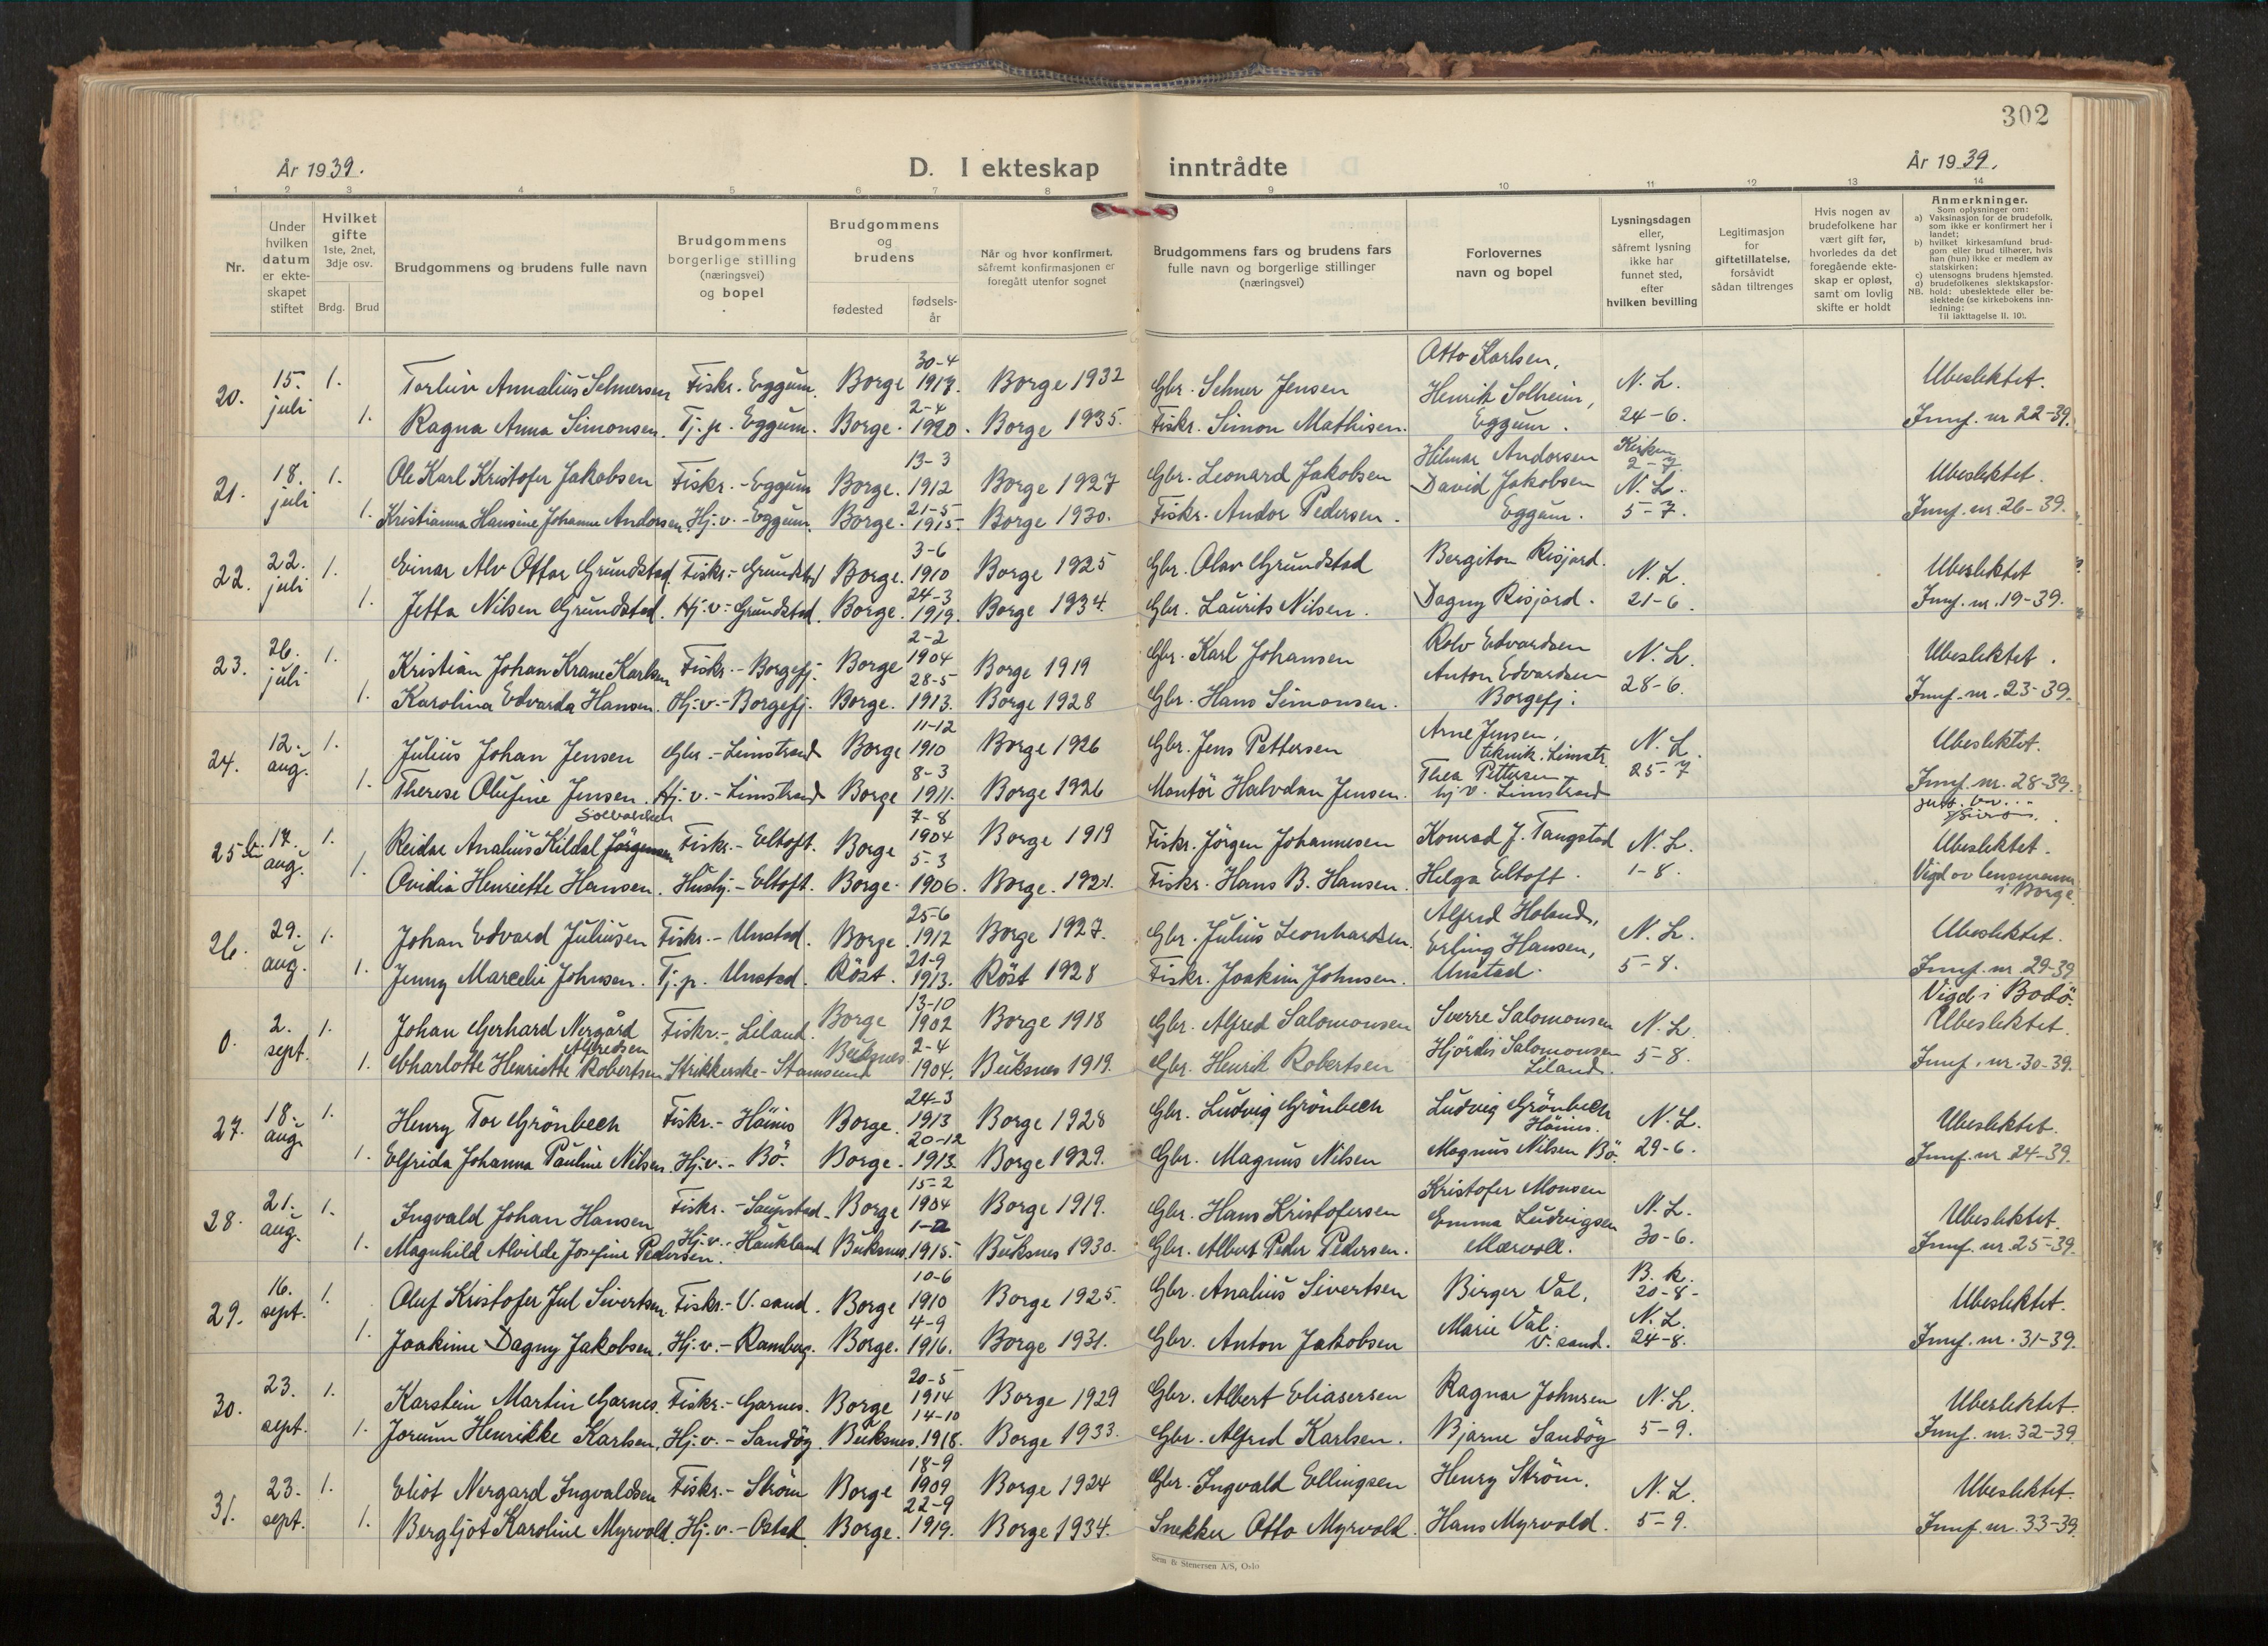 302
År 1939.
D. I ekteskap inntrådte
År 1939.
1 2 3 4 5 6 7 8 9 10 11 12 13 14
Nr.
Under hvilken datum er ekte-skapet stiftet
Hvilket gifte 1ste, 2net, 3dje osv.
Brdg. Brud
Brudgommens og brudens fulle navn
Brudgommens borgerlige stilling (næringsvei) og bopel
Brudgommens og brudens
fødested
fødsels-år
Når og hvor konfirmert, såfremt konfirmasjonen er foregått utenfor sognet
Brudgommens fars og brudens fars fulle navn og borgerlige stillinger (næringsvei)
Forlovernes navn og bopel
Lysningsdagen eller, såfremt lysning ikke har funnet sted, efter hvilken bevilling
Legitimasjon for giftetillatelse, forsåvidt sådan tiltrenges
Hvis nogen av brudefolkene har vært gift før, hvorledes da det foregående ekte-skap er opløst, samt om lovlig skifte er holdt
Anmerkninger.
Som oplysninger om:
a) Vaksinasjon for de brudefolk, som ikke er konfirmert her i landet;
b) hvilket kirkesamfund brud-gom eller brud tilhører, hvis han (hun) ikke er medlem av statskirken;
c) utensogns brudens hjemsted.
d) brudefolkenes slektskapsfor-
NB. hold: ubeslektede eller be-slektede (se kirkebokens inn-ledning:
Til iakttagelse II. 10).
20. 15. juli 1. Torleiv Annalius Selmersen Fiskr. Eggum. Borge 30-4 1913. Borge 1932 Gbr. Selmer Jensen Otto Karlsen, Henrik Solheim, Eggum. N. L. 24-6. Ubeslektet.
1. Ragna Anna Simonsen. Tj. p. Eggum. Borge. 2-4 1920. Borge 1935. Fiskr. Simon Mathisen. Innf. nr 22-39.
21. 18. juli 1. Ole Karl Kristofer Jakobsen Fiskr. - Eggum Borge. 13-3 1912 Borge 1927 Gbr. Leonard Jakobsen Hilmar Andorsen David Jakobsen Eggum. 2-7. N. L. 5-7. Ubeslektet.
1. Kristianna Hansine Johanne Andorsen Hj. v. - Eggum. Borge. 21-5 1915. Borge 1930. Fiskr. Andor Pedersen. Innf. nr. 26-39.
22. 22. juli 1. Einar Alv Ottar Grundstad Fiskr. - Grundstad Borge. 3-6 1910 Borge 1925 Gbr. Olav Grundstad Bergiton Risjord. Dagny Risjord. N. L. 21-6. Ubeslektet
1. Jetta Nilsen Grundstad. Hj. v. - Grundstad. Borge. 24-3 1919. Borge 1934. Gbr. Laurits Nilsen. Innf. nr. 19-39.
23. 26. juli 1. Kristian Johan Krane Karlsen Fiskr. - Borgefj. Borge 2-2 1904 Borge 1919 Gbr. Karl Johansen Rolv Edvardsen Anton Edvardsen Borgefj. N. L. 28-6. Ubeslektet.
1. Karolina Edvarda Hansen. Hj. v. - Borgefj. Borge. 28-5 1913. Borge 1928 Gbr. Hans Simonsen. Innf. nr. 23-39.
24. 12. aug. 1. Julius Johan Jensen Gbr. - Limstrand Borge 11-12 1910 Borge 1926 Gbr. Jens Pettersen Arne Jensen, teknik. Limstr. Thea Pettersen hj. v. Limstrand N. L. 25-7 Ubeslektet.
1. Therese Olufine Jensen. Hj. v. - Limstrand Borge 8-3 1911. Borge 1926 Montör Halvdan Jensen. Innf. nr. 28-39.
25 17. aug. 1. Reidar Analius Kildal Jörgensen Fiskr. - Eltoft. Borge 7-8 1904 Borge 1919 Fiskr. Jörgen Johannesen Konrad J. Tangstad Helga Eltoft. N. L. 1-8. Ubeslektet.
1. Ovidia Henriette Hansen. Hushj. - Eltoft. Borge. 5-3 1906. Borge. 1921. Fiskr. Hans B. Hansen. Vigd av lensmannen i Borge.
26. 29. aug. 1. Johan Edvard Juliussen Fiskr. - Unstad. Borge. 25-6 1912 Borge 1927. Gbr. Julius Leonhardsen. Alfred Holand, Erling Hansen, Unstad. N. L. 5-8. Ubeslektet.
1. Jenny Marcelie Johnsen. Tj. p. Unstad. Röst. 21-9 1913. Röst 1928 Fiskr. Joakim Johnsen. Innf. nr 29-39
0. 2. sept. 1. Johan Gerhard Nergård Alfredsen Fiskr. - Liland. Borge 13-10 1902 Borge 1918 Gbr. Alfred Salomonsen Sverre Salomonsen Hjördis Salomonsen Liland. N. L. 5-8. Vigd i Bodö. Ubeslektet.
1. Charlotte Henriette Robertsen Strikkerske - Stamsund Buksnes 2-4 1904. Buksnes 1919. Gbr. Henrik Robertsen Innf. nr. 30-39.
27. 18. aug. 1. Henry Tor Grönbech Fiskr. - Höines Borge. 24-3 1913 Borge 1928 Gbr. Ludvig Grönbech Ludvig Grönbech Höines. Magnus Nilsen Bö. N. L. 29-6. Ubeslektet.
1. Elfrida Johanna Pauline Nilsen. Hj. v. - Bö. Borge. 20-12 1913. Borge 1929. Gbr. Magnus Nilsen Innf. nr 24-39.
28. 21. aug. 1. Ingvald Johan Hansen Fiskr. - Saupstad. Borge 15-2 1904 Borge 1919. Gbr. Hans Kristofersen Kristofer Monsen Emma Ludvigsen Mærvoll. N. L. 30-6. Ubeslektet.
1. Magnhild Alvilde Josefine Pedersen. Hj. v. Haukland Buksnes. 1-2 1915. Buksnes 1930. Gbr. Albert Peder Pedersen. Innf. nr. 25-39.
29. 16. sept. 1. Oluf Kristofer Jul Sivertsen. Fiskr. - V. sand. Borge 10-6 1910 Borge 1925. Gbr. Analius Sivertsen Birger Val. Marie Val. V. sand. B. k. 20-8- N. L. 24-8. Ubeslektet.
1. Joakime Dagny Jakobsen. Hj. v. - Ramberg. Borge. 4-9 1916. Borge 1931. Gbr. Anton Jakobsen Innf. nr. 31-39.
30. 23. sept. 1. Karstein Martin Garnes. Fiskr. - Garnes. Borge 20-5 1914 Borge 1929 Gbr. Albert Eliasersen Ragnar Johnsen Bjarne Sandöy N. L. 5-9. Ubeslektet.
1. Jorunn Henrikke Karlsen. Hj. v. - Sandöy. Buksnes. 14-10 1918. Borge 1933. Gbr. Alfred Karlsen. Innf. nr. 32-39.
31. 23. sept. 1. Eliot Nergard Ingvaldsen Fiskr. - Ström Borge 18-9 1909 Borge 1924 Gbr. Ingvald Ellingsen Henry Ström. Hans Myrvold. N. L. 5-9. Ubeslektet.
1. Bergljot Karoline Myrvold. Hj. v. - Ostad. Borge. 22-9 1919. Borge 1934. Snekker Otto Myrvold. Innf. nr. 33-39.
Sem & Stenersen A/S, Oslo